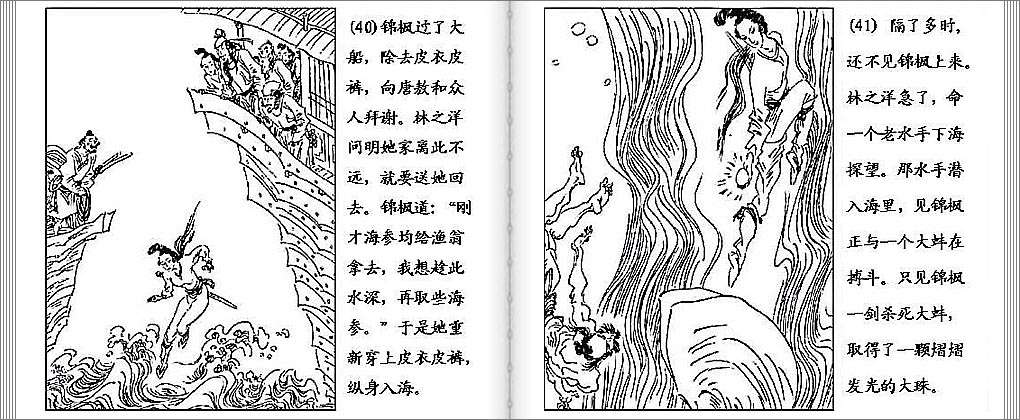 (40)锦枫过了大
船，除去皮衣皮
裤，向唐敖和众
人拜谢。林之洋
问明她家离此不
远，就要送她回
去。锦枫道：“刚
才海参均给渔翁
拿去，我想趁此
水深，再取些海
参。”于是她重
新穿上皮衣皮裤，
纵身入海。
(41) 隔了多时，
还不见锦枫上来。
林之洋急了，命
一个老水手下海
探望。那水手潜
入海里，见锦枫
正与一个大蚌在
搏斗。只见锦枫
一剑杀死大蚌，
取得了一颗熠熠
发光的大珠。